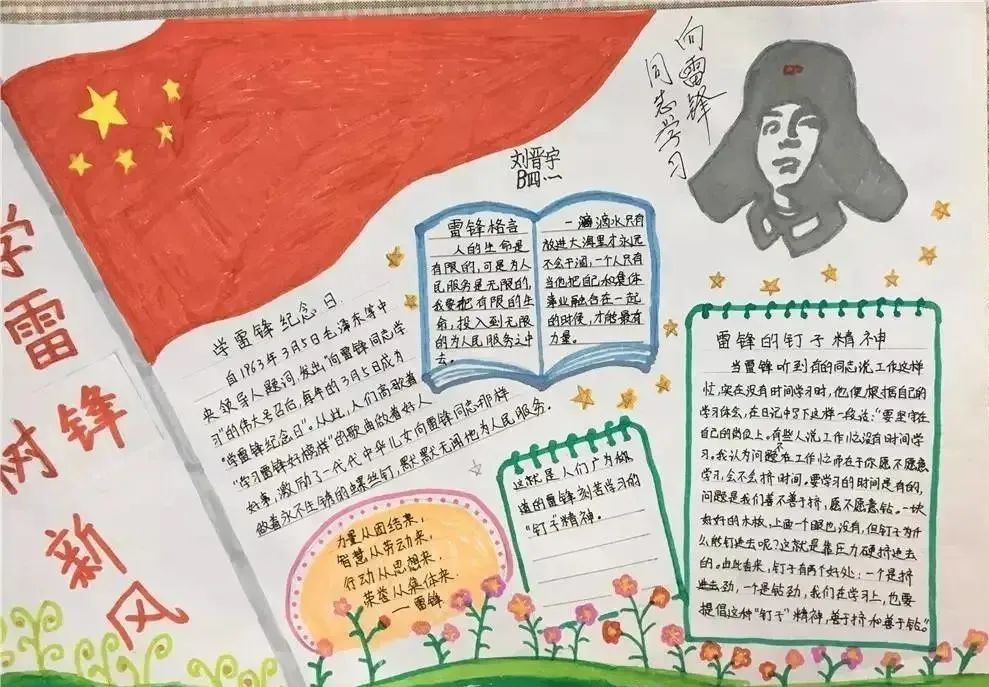 学雷锋
树新风
向雷锋
同志学习
刘晋宇
学雷锋纪念日
自1963年3月5日毛泽东等中
央领导人题词，发出"向雷锋同志学
习"的伟大号召后，每年的3月5日成为
"学雷锋纪念日"。从此，人们高歌着
"学习雷锋好榜样"的歌曲做着好人
好事，激励了一代代中华儿女向雷锋同志那样
做着永不生锈的螺丝钉，默默无闻地为人民服务。
雷锋格言
人的生命是
有限的，可是为人
民服务是无限的，
我要把有限的生
命，投入到无限
的为人民服务之中
去。
一滴滴水只有
放进大海里才永远
不会干涸，一个人只有
当他把自己和集体
事业融合在一起
的时候，才能最有
力量。
力量从团结来，
智慧从劳动来，
行动从思想来，
荣誉从集体来。
——雷锋
这就是人们广为级
道的雷锋刻苦学习的
"钉子"精神。
雷锋的钉子精神
当雷锋听到有的同志说工作这样
忙，实在没有时间学习时，他便根据自己的
学习体会，在日记中写下这样一段话："要坚守在
自己的岗位上。有些人说工作忙没有时间学
习，我认为问题不在工作忙而在于你愿不愿意
学习，会不会挤时间。要学习的时间是有的，
问题是我们善不善于挤，愿不愿意钻。一块
好好的木板，上面一个眼也没有，但钉子为什
么能钉进去呢？这就是靠压力硬挤进去
的。由此看来，钉子有两个好处：一个是挤
进去劲，一个是钻劲，我们在学习上，也要
提倡这种"钉子"精神，善于挤和善于钻。"